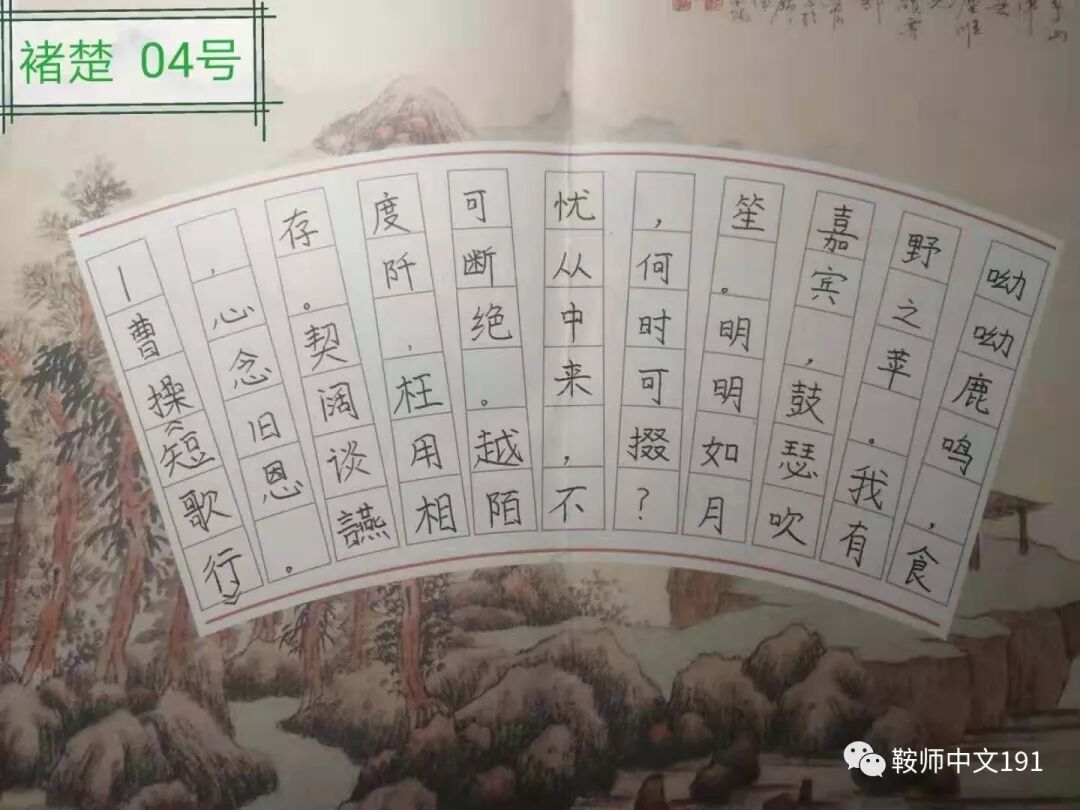 褚楚 04号
呦呦鹿鸣，食
野之苹。我有
嘉宾，鼓瑟吹
笙。明明如月
，何时可掇？
忧从中来，不
可断绝。越陌
度阡，枉用相
存。契阔谈讌
，心念旧恩。
—曹操《短歌行》
鞍师中文191